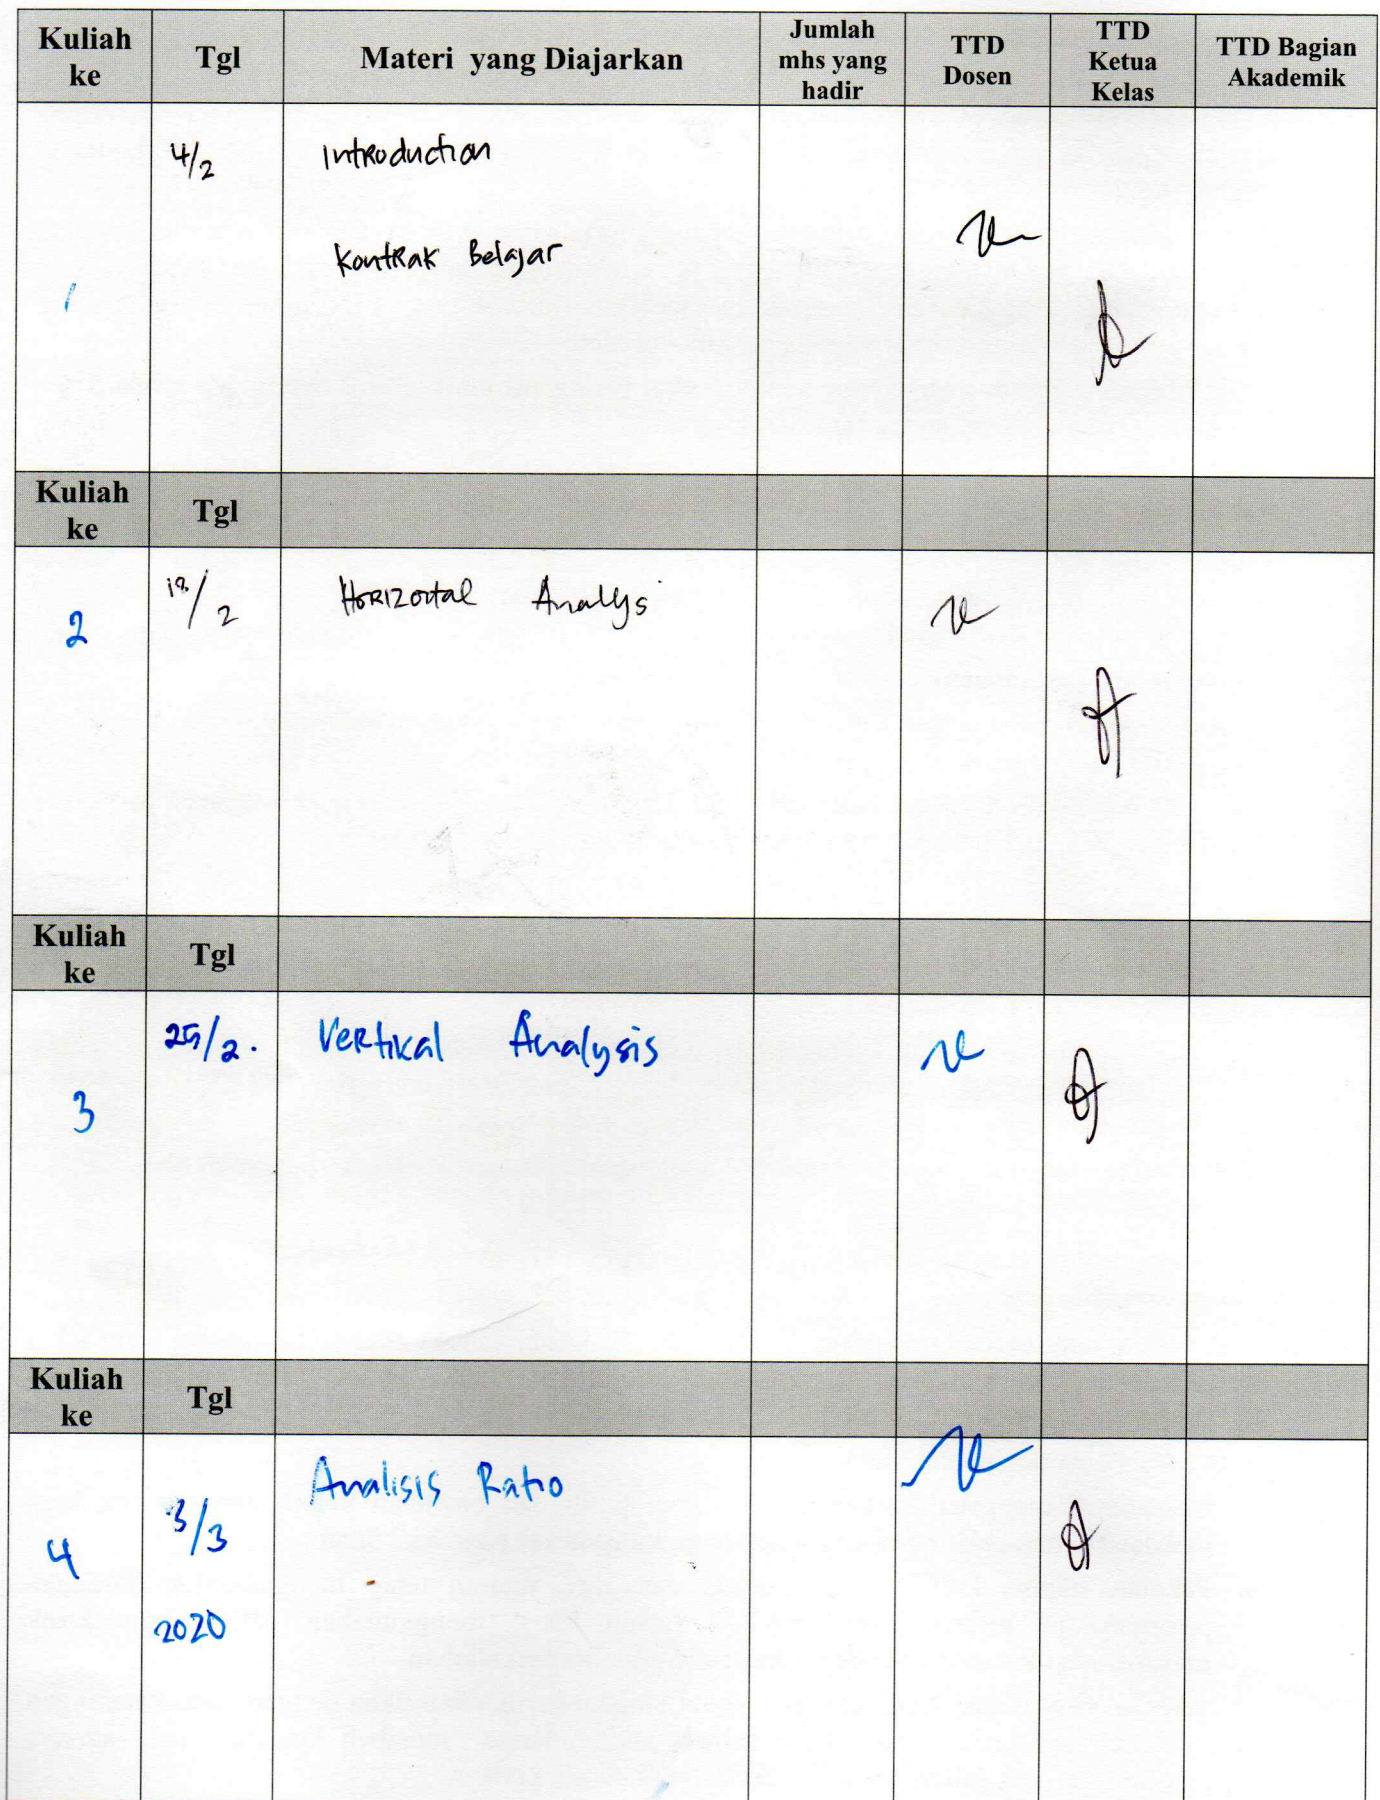 Kuliah ke Tgl Materi yang Diajarkan Jumlah mhs yang hadir TTD Dosen TTD Ketua Kelas TTD Bagian Akademik
1 4/2 Introduction
Kontrak Belajar
Kuliah ke Tgl
2 /2 Horizontal Analys
Kuliah ke Tgl
3 25/2. Vertikal Analysis
Kuliah ke Tgl
4 3/3 Analisis Ratio
2020